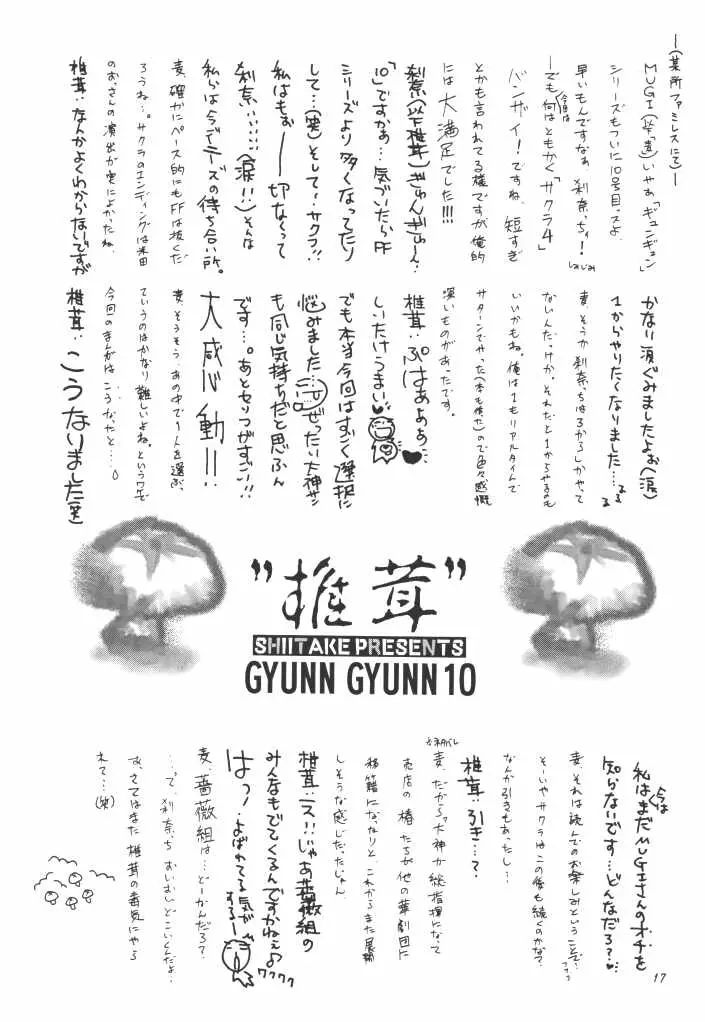 ―(某所ファミレスにて)―
MUGI(以下麦)いやぁ「ギュンギュン」
シリーズもついに10号目っスよ
早いもんですなぁ 刹奈っち
しみじみ
ーでも何はともかく「サクラ4」
今回は
バンザイ!ですね、短すぎ
とかも言われてる様ですが俺的
には大満足でした!!!
刹奈(以下椎茸)ぎゅんぎゅん…
「10」ですかぁ…気づいたらFF
シリーズより多くなってたり
して…(笑)そして!サクラ!!
私はもぉ――切なくって
刹奈い…(涙!!)そんな
私らは今デニーズの待ち合い所。
麦:確かにペース的にもFFは抜くだ
ろうね…。サクラのエンディングは米田
のおっさんの演出が実によかったね、
椎茸:なんかよくわからないですが
かなり涙ぐみましたよぉ(涙)
1からやりたくなりました…
麦:そうか 刹奈っちは3からしかやって
ないんだっけか。それだと1からやるのも
いいかもね。俺は1もリアルタイムで
サターンでやった(本も作った)ので色々感慨
深いものがあったです。
椎茸:ぷはあぁぁ
しいたけうまい♥
でも本当今回はすごく選択に
悩みました…ぜったい大神サン
も同じ気持ちだと思ふん
です…。あとセリフがすごい!!
大感動!!
麦:そうそう、あの中で1人を選ぶ、
ていうのはかなり難しいよね。というワケで
今回のまんがはこうなったと…。
椎茸:こうなりました(笑)
"椎茸"
SHIITAKE PRESENTS
GYUNN GYUNN 10
私はまだMUGIさんのオチを
今は
知らないです…どんなだろ?…♥
麦:それは読んでのお楽しみということで…
フフフ
そーいやサクラはこの後も続くのかな?
なんか引きもあったし…
椎茸:引き…?
ちょいネタバレ
麦:だから、大神が総指揮になって
売店の椿たちが他の華劇団に
移籍になったりと これからまた展開
しそうな感じだったじゃん
椎茸:え!!じゃあ薔薇組の
みんなもでてくるんですかねぇ♪
ワクワク
はっ!よばれてる気が
するー
麦:薔薇組は…どーかんだろ?
…って、刹奈っち おいおいどこいくんだよ…
あ、さてはまた 椎茸の毒気にやら
れて…(笑)
17